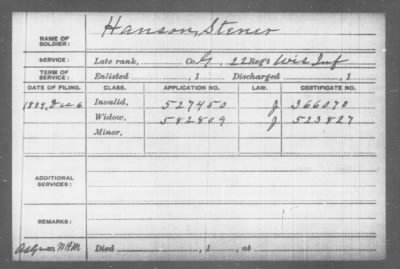 NAME OF SOLDIER: Hanson, Stener
SERVICE: Late rank, Co. G, 22 Reg't Wis Inf
TERM OF SERVICE: Enlisted , 1 Discharged , 1
DATE OF FILING. CLASS. APPLICATION NO. LAW. CERTIFICATE NO.
Invalid, 527450 J 366070
Widow, 582809 J 523827
Minor,
ADDITIONAL SERVICES:
REMARKS:
Died , 1 , at